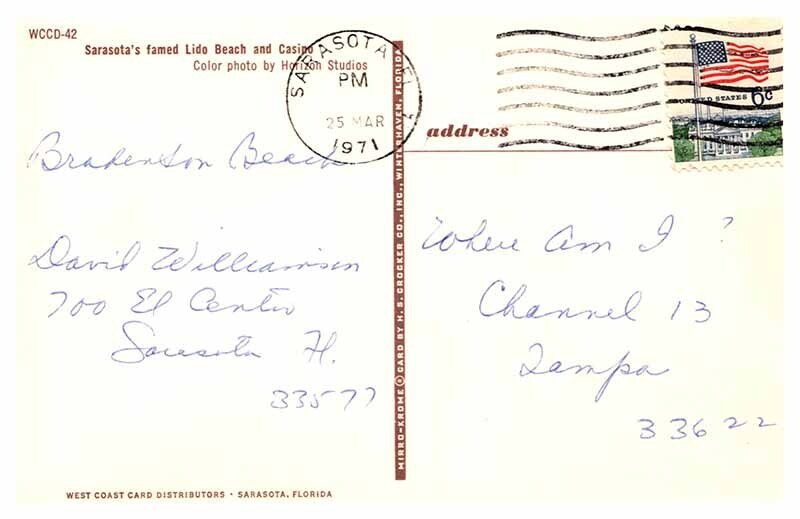 WCCD-42
Sarasota's famed Lido Beach and Casino
Color photo by Horizon Studios
SARASOTA FL
PM
25 MAR
1971
UNITED STATES 6c
address
Bradenton Beach
David Williamson
700 El Centro
Sarasota Fl.
33577
MIRRO-KROME CARD BY H. S. CROCKER CO., INC., WINTER HAVEN, FLORIDA
Where Am I ?
Channel 13
Tampa
33622
WEST COAST CARD DISTRIBUTORS · SARASOTA, FLORIDA